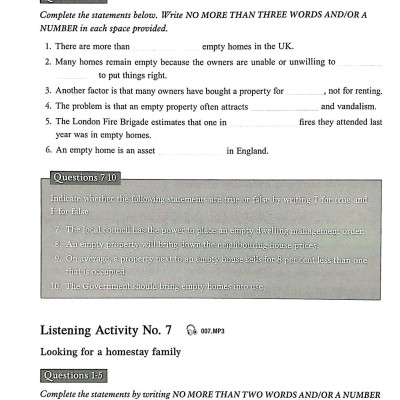 Complete the statements below. Write NO MORE THAN THREE WORDS AND/OR A
NUMBER in each space provided.
1. There are more than ____________ empty homes in the UK.
2. Many homes remain empty because the owners are unable or unwilling to ________
________ to put things right.
3. Another factor is that many owners have bought a property for ________, not for renting.
4. The problem is that an empty property often attracts ____________ and vandalism.
5. The London Fire Brigade estimates that one in ____________ fires they attended last
year was in empty homes.
6. An empty home is an asset ____________ in England.
Questions 7-10
Indicate whether the following statements are true or false by writing T for true and
F for false
7. The local council has the power to place an empty dwelling management order.
8. An empty property will bring down the neighbouring house prices.
9. On average, a property next to an empty house sells for 8 per cent less than one
that is occupied.
10. The Government should bring empty homes into use.
Listening Activity No. 7 007.MP3
Looking for a homestay family
Questions 1-5
Complete the statements by writing NO MORE THAN TWO WORDS AND/OR A NUMBER